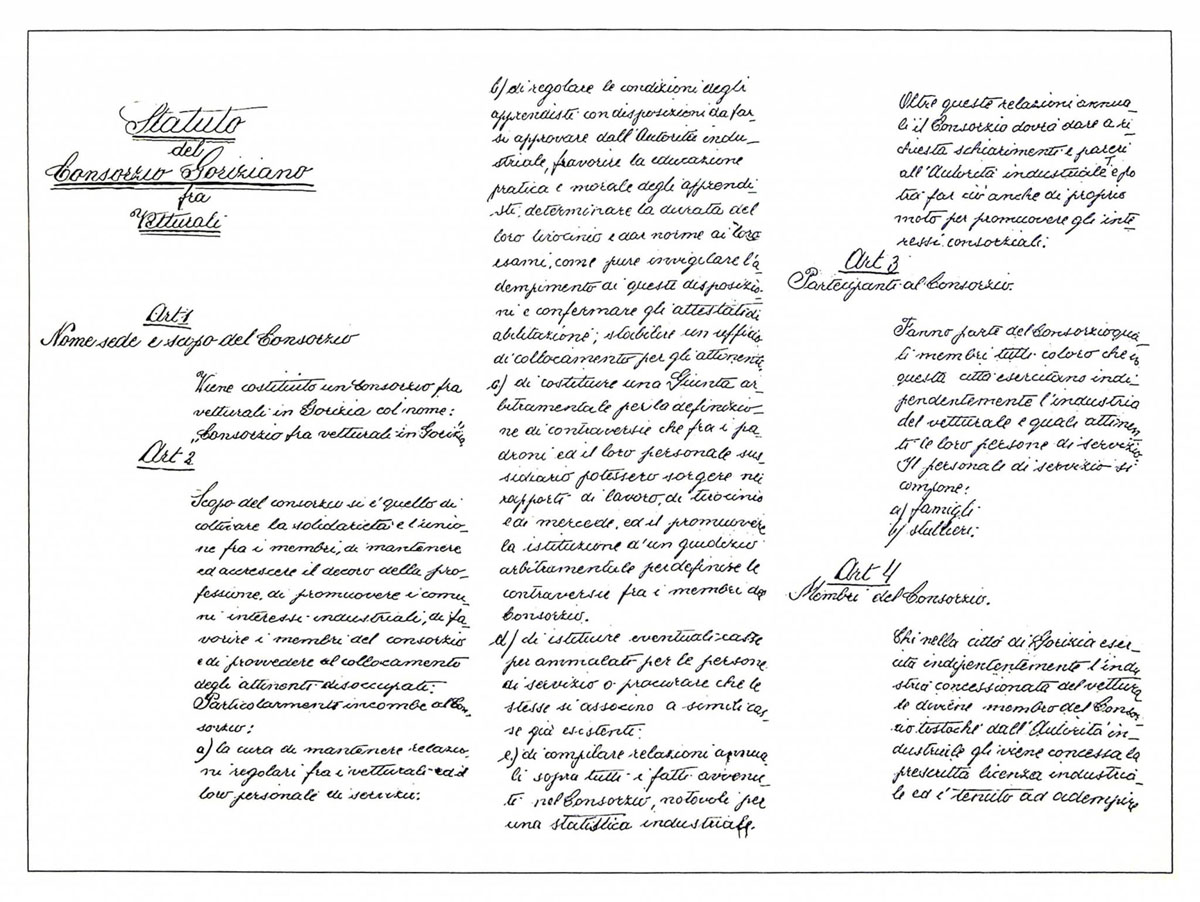 Statuto
del
Consorzio Goriziano
fra
Vetturali
Art 1
Nome sede e scopo del Consorzio
Viene costituito un Consorzio fra
vetturali in Gorizia col nome:
„Consorzio fra vetturali in Gorizia"
Art 2
Scopo del consorzio si è quello di
coltivare la solidarietà e l'unio-
ne fra i membri, di mantenere
ed accrescere il decoro della pro-
fessione, di promuovere i comu-
ni interessi industriali, di fa-
vorire i membri del consorzio
e di provvedere al collocamento
degli attinenti disoccupati.
Particolarmente incombe al Con-
sorzio:
a) la cura di mantenere relazio-
ni regolari fra i vetturali ed il
loro personale di servizio.
b) di regolare le condizioni degli
apprendisti con disposizioni da far-
si approvare dall'Autorità indu-
striale, fravorire la educazione
pratica e morale degli apprendi-
sti, determinare la durata del
loro tirocinio e dar norme ai loro
esami, come pure invigilare l'a-
dempimento di queste disposizio-
ni e confermare gli attestati di
abilitazione; stabilire un ufficio
di collocamento per gli attinenti.
c) di costituire una Giunta ar-
bitramentale per la definizio-
ne di contraversie che fra i pa-
droni ed il loro personale sus-
sidiario potessero sorgere nei
rapporti di lavoro, di tirocinio
e di mercede, ed il promuovere
la istituzione d'un giudizio
arbitramentale per definire le
contraversie fra i membri del
Consorzio.
d) di istituire eventuali casse
per ammalati per le persone
di servizio o procurare che le
stesse si associno a simili cas-
se già esistenti.
e) di compilare relazioni annua-
li sopra tutti i fatti avvenu-
ti nel Consorzio, notovoli per
una statistica industriale.
Oltre queste relazioni annua-
li il Consorzio dovrà dare a ri-
chiesta schiarimenti e pareri
all'Autorità industriale e po
trà far ciò anche di proprio
moto per promuovere gli inte-
ressi consorziali.
Art 3
Partecipanti al Consorzio.
Fanno parte del Consorzio qua-
li membri tutti coloro che in
questa città esercitano indi-
pendentemente l'industria
del vetturale e quali attinen-
ti le loro persone di servizio.
Il personale di servizio si
compone:
a) famigli
b) stallieri.
Art 4
Membri del Consorzio.
Chi nella città di Gorizia eser-
cita indipententemente l'indu
stria concessionata del vettura
le diviene membro del Consor-
zio tostochè dall'Autorità in-
dustriale gli viene concessa la
prescritta licenza industria-
le ed è tenuto ad adempire